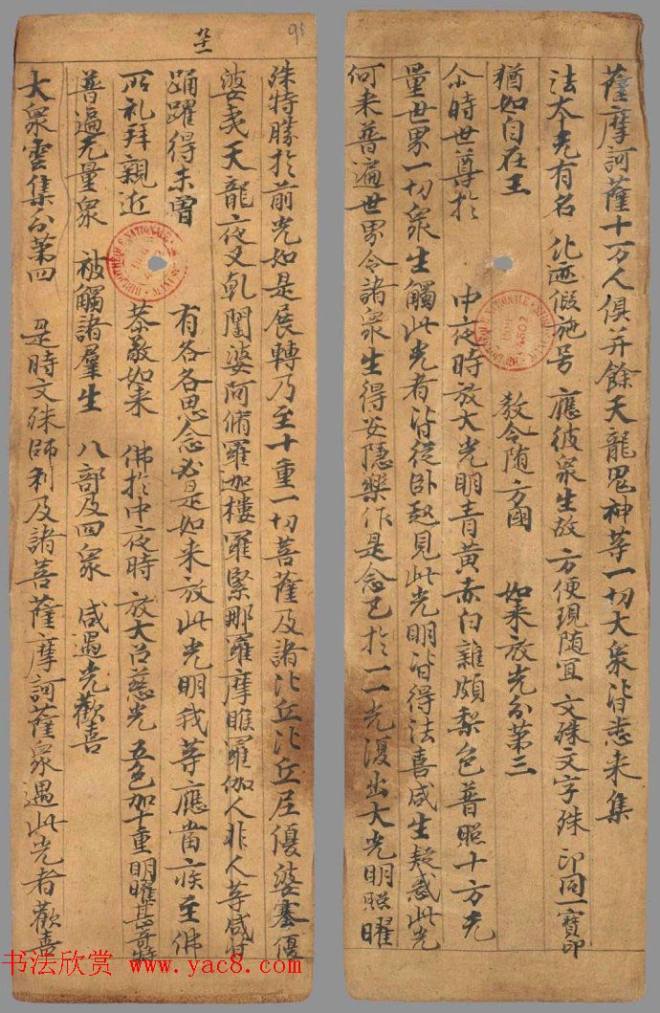 薩摩訶薩十万人俱并餘天龍鬼神等一切大衆皆悉来集
法本光有名 化迹假施号 應彼衆生故 方便現随宜 文殊文字殊 印同一寶印
猶如自在王 教令随方國 如来放光分第三
尒時世尊於中夜時放大光明青黄赤白雜頗梨色普照十方无
量世界一切衆生觸此光者皆從卧起見此光明皆得法喜咸生疑惑此光
何来普遍世界令諸衆生得安隱樂作是念已於一一光復出大光明照曜
殊特勝於前光如是展轉乃至十重一切菩薩及諸比丘比丘尼優婆塞優
婆夷天龍夜叉乹闥婆阿脩羅迦樓羅緊那羅摩睺羅伽人非人等咸皆
踊躍得未曽有各各思念必是如来放此光明我等應當疾至佛
所礼拜親近恭敬如来 佛於中夜時 放大慈光 五色加十重 明曜甚奇特
普遍无量衆 被觸諸羣生 八部及四衆 咸遇光歡喜
大衆雲集分第四 是時文殊師利及諸菩薩摩訶薩衆遇此光者歡喜
95
书法欣赏 www.yac8.com